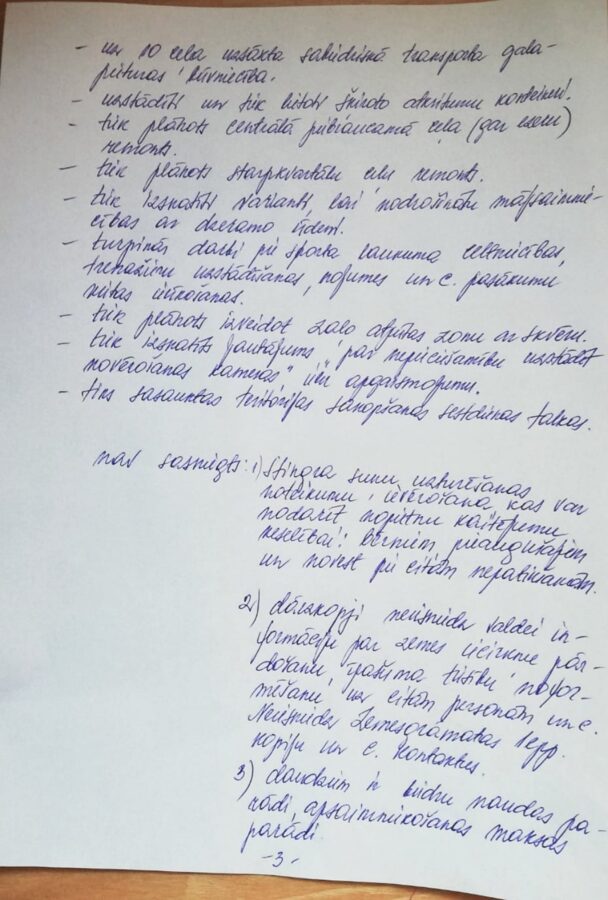 - uz 10 ceļa uzsākta sabiedriskā transporta gala-
pieturas būvniecība.
- uzstādīti un tiek lietoti šķiroto atkritumu konteineri.
- tiek plānots centrālā piebraucamā ceļa (gar ezeru)
remonts.
- tiek plānots starpkvartālu ceļu remonts.
- tiek izskatīti varianti, lai nodrošinātu mājsaimnie-
cības ar dzeramo ūdeni.
- turpinās darbi pie sporta laukuma celtniecības,
trenažieru uzstādīšanas, nojumes un c. pasākumu
vietas ierīkošanas.
- tiek plānots izveidot zaļo atpūtas zonu ar skvēru.
- tiek izskatīts jautājums par nepieciešamību uzstādīt
novērošanas kameras un apgaismojumu.
- tiks sasauktas teritorijas sakopšanas sestdienas talkas.
nav sasniegts: 1) Stingra suņu uzturēšanas
noteikumu ievērošana kas var
nodarīt nopietnu kaitējumu
veselībai: bērniem pieaugušajiem
un novest pie citām nepatikšanām.
2) dārzkopji neiesniedz valdei in-
formāciju par zemes iecirkņu pār-
došanu, īpašuma tiesību nofor-
mēšanu uz citām personām un c.
Neiesniedz Zemesgrāmatas aepp.
kopiju un c. kontaktus.
3) daudziem ir biedru naudas pa-
rādi, apsaimniekošanas maksas
parādi.
-3-